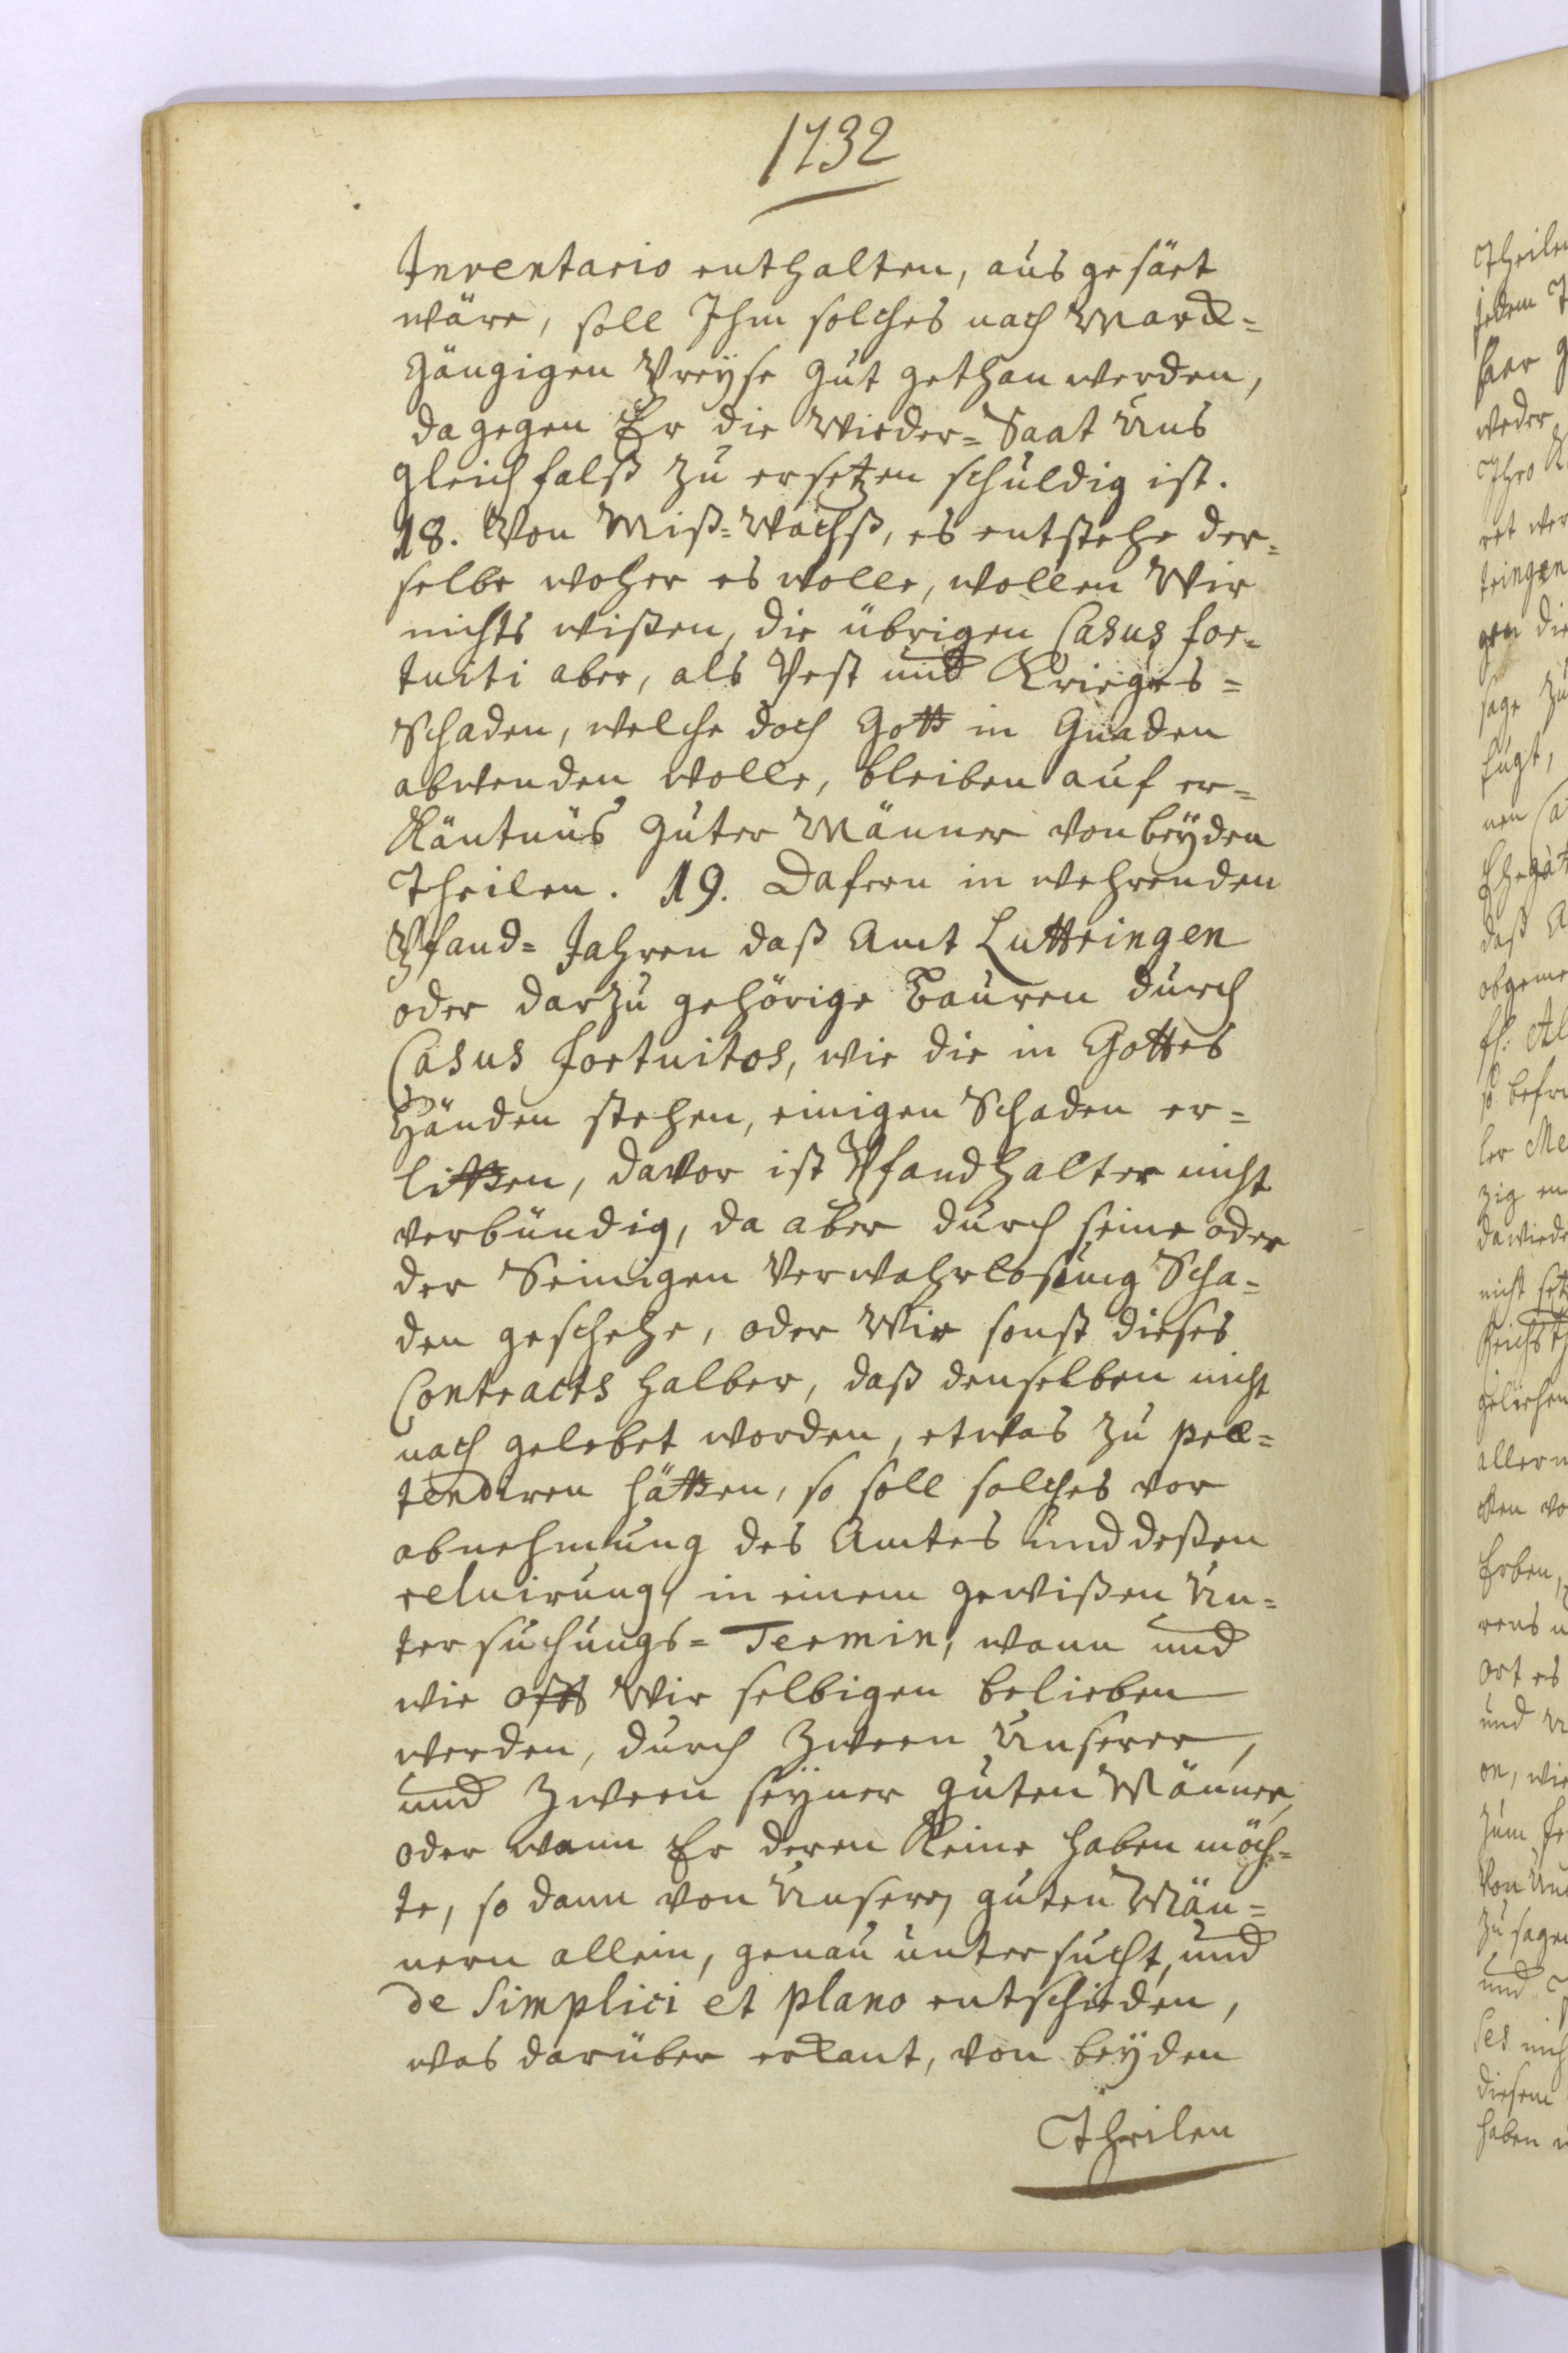 1732
Inventario enthalten, ausgesäet
wäre, soll Ihm solches nach Marck=
gängigen Preyse gut gethan werden,
dagegen Er die Wieder=Saat Uns
gleichfalß zu ersetzen schuldig ist.
18. Von Miß=Wachß, es entstehe der=
selbe woher es wolle, wollen Wir
nichts wißen, die übrigen Casus for=
tuiti aber, als Pest und Krieges=
Schaden, welche doch Gott in Gnaden
abwenden wolle, bleiben auf er=
käntnüs guter Männer von beyden
Theilen. 19. Dafern in wehrenden
Pfand=Jahren daß Amt Luttringen
oder darzu gehörige Bauren durch
Casus fortuitos, wie die in Gottes
Händen stehen, einigen Schaden er=
litten, davor ist Pfandhalter nicht
verbündig, da aber durch seine oder
der Seinigen Verwahrlosung Scha=
den geschehe, oder Wir sonst dieses
Contracts halber, daß denselben nicht
nach gelebet worden, etwas zu præ=
tendiren hätten, so soll solches vor
abnehmung des Amtes und deßen
reluirung, in einem gewißen Un=
tersuchungs=Termin, wann und
wie offt Wir selbigen belieben
werden, durch zween Unserer,
und zween seyner guten Männer,
oder wann Er deren keine haben möch=
te, so dann von Unsern guten Män=
nern allein, genau untersucht, und
de simplici et plano entschieden,
was darüber erkant, von beyden
Theilen